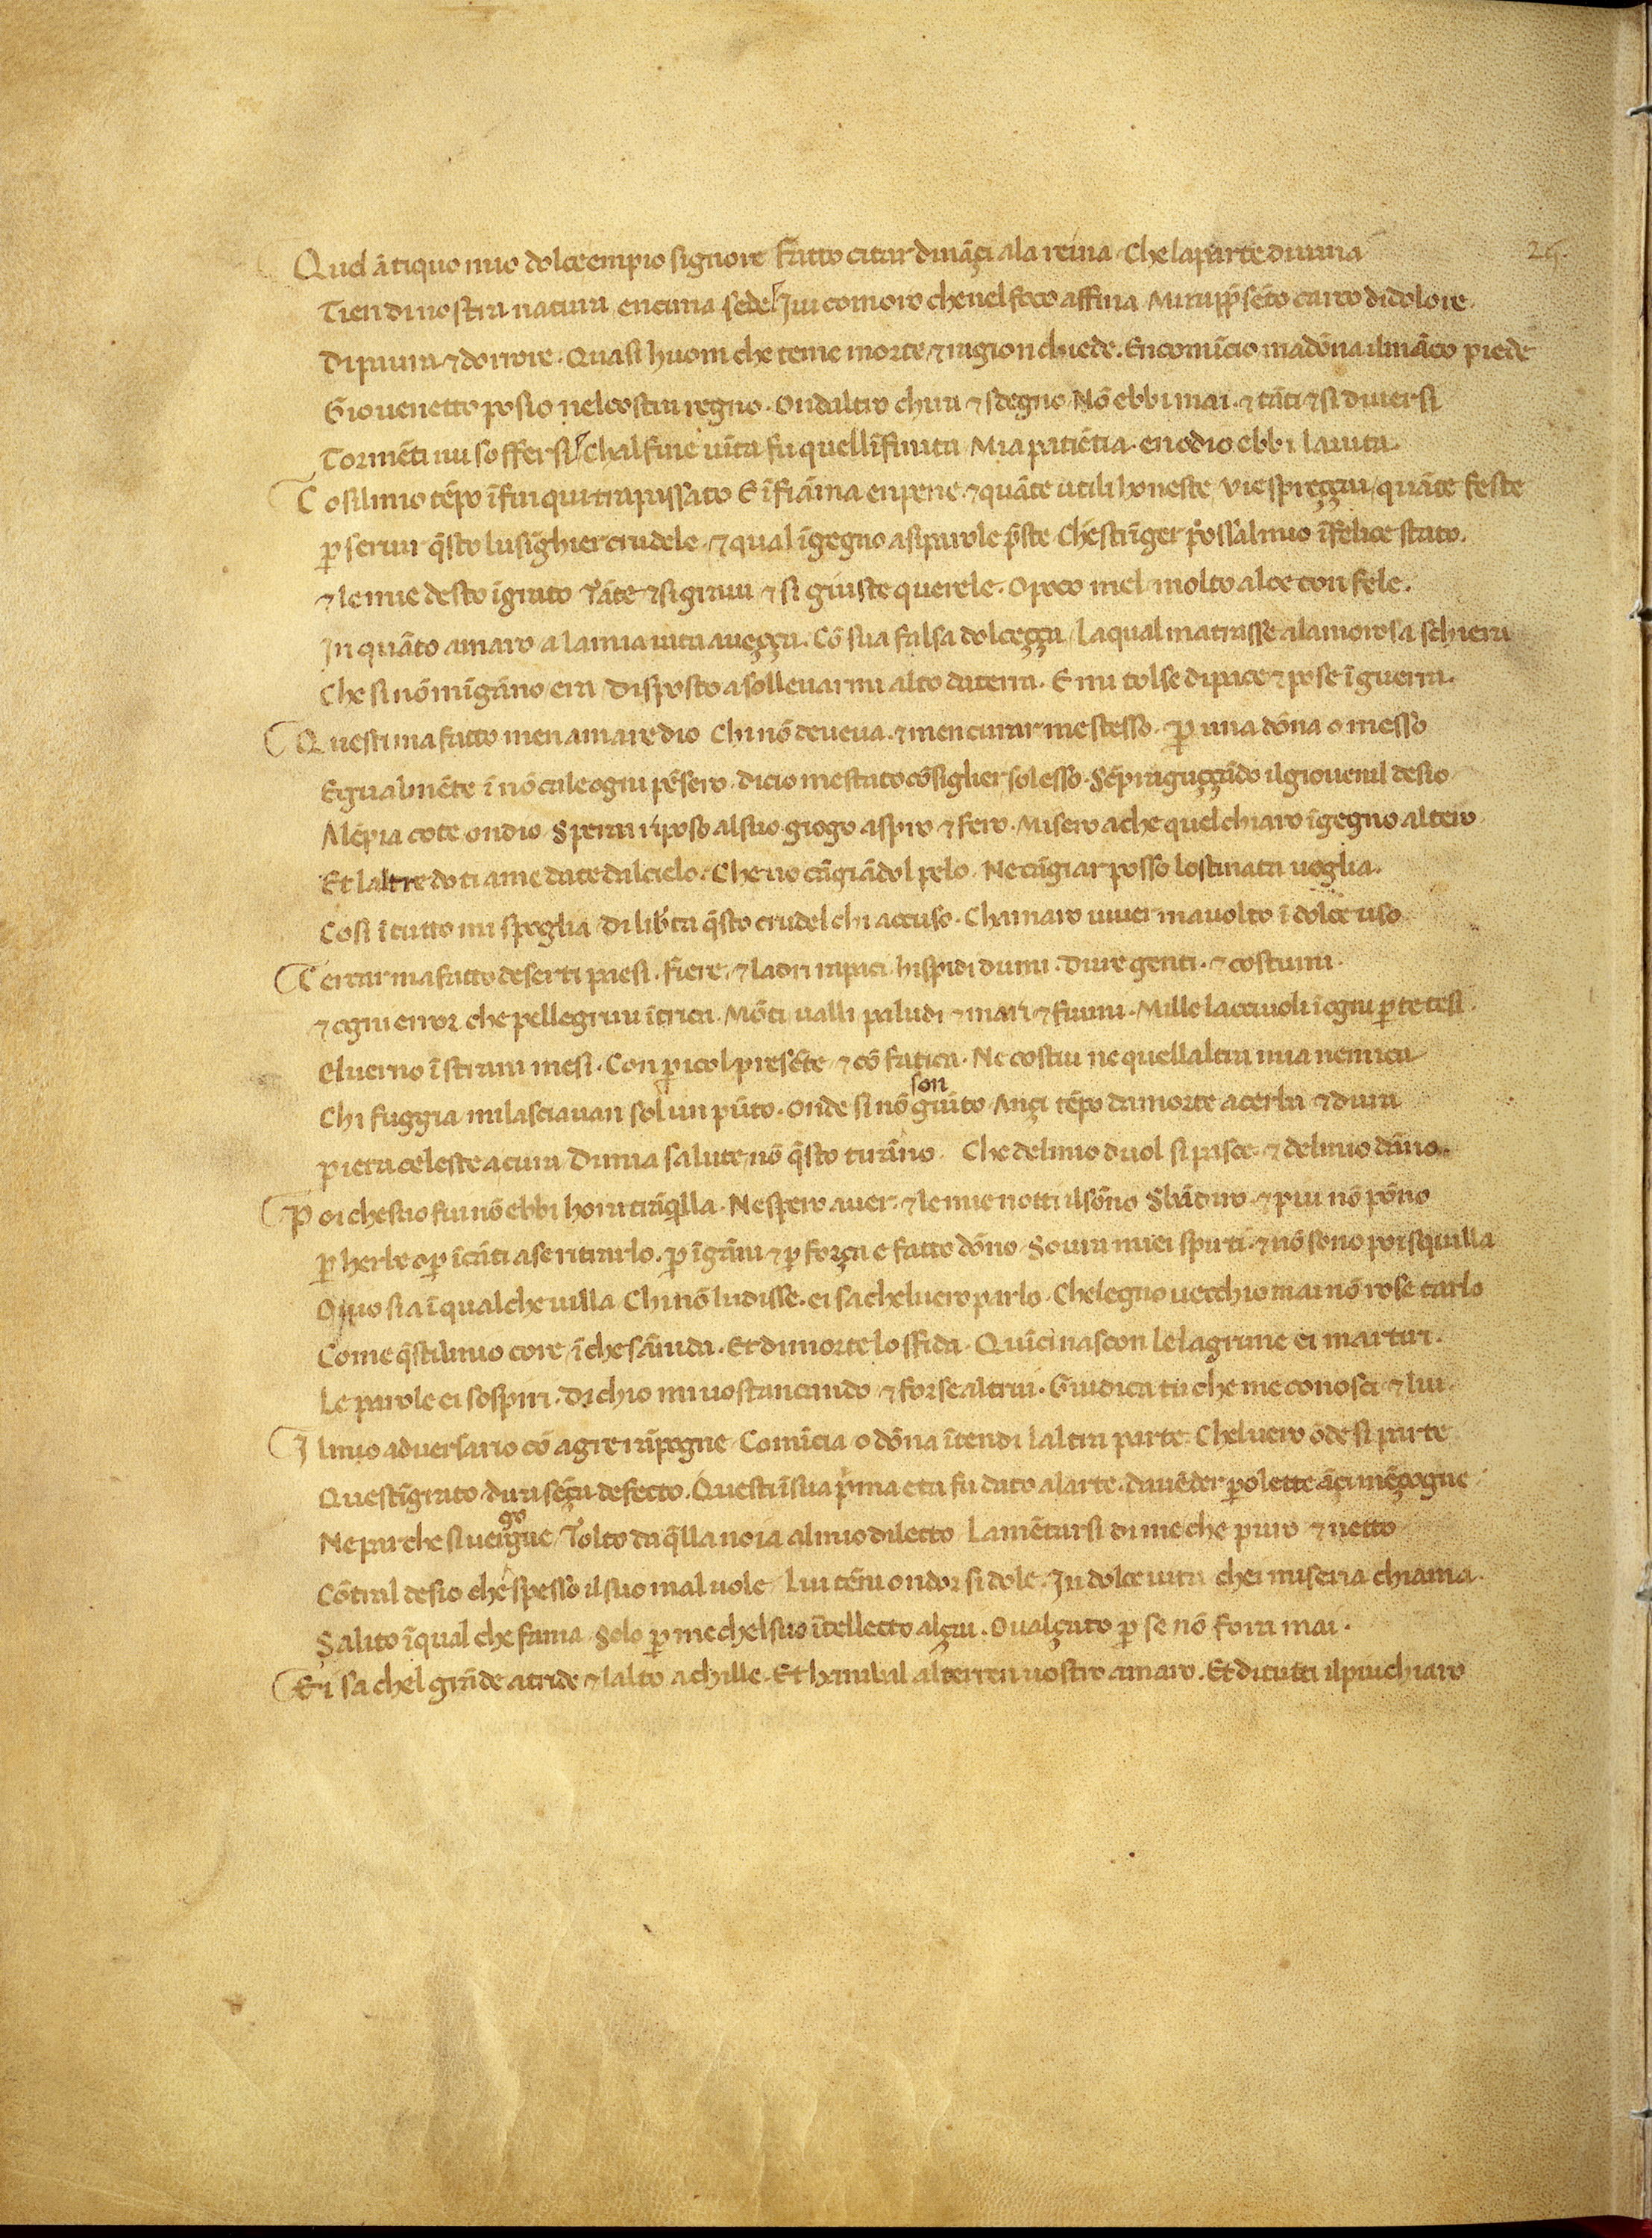 Quel ãtiquo mio dolce empio signore Fatto citar dinãçi ala reina · Che la parte divina 26.
Tien di nostra natura en cima sede / Ivi comoro che nel foco affina Mi rappsẽto carco di dolore ·
Di paura ⁊ dorrore · Quasi huom che teme morte ⁊ ragion chiede · En comĩcio madõna il mãco piede
Giovenetto posio nel costui regno · Ondaltro chira ⁊ sdegno Nõ ebbi mai · ⁊ tãti ⁊ si diversi
Tormẽti ivi soffersi / Chal fine vĩta fu quellĩfinita Mia patiẽtia · en odio ebbi la vita ·
Cosil mio tẽpo ĩfin qui trapassato E ĩ fiãma en pene · ⁊ quãte utili honeste / vie spreççai / quãte feste
p servir q̃sto lusĩghier crudele · ⁊ qual ĩgegno a si parole p̃ste Che strĩger possal mio ĩfelice stato ·
⁊ le mie desto ĩgrato Tãte ⁊ si gravi ⁊ si giuste querele · O poco mel molto aloe con fele ·
In quãto amaro a la mia vita aveçça · Cõ sua falsa dolceçça / La qual matrasse a lamorosa schiera
Che si nõ mĩgãno era Disposto a sollevarmi alto da terra · E mi tolse di pace ⁊ pose ĩ guerra ·
Questi ma fatto men amare dio Chi nõ deveva · ⁊ men curar me stesso · p una dõna o messo
Egualmẽte ĩ nõ cale ogni pẽsero · di cio me stato cõsiglier sol esso · Sẽpraguççãdo il giovenil desio
A lẽpia cote ondio Sperai riposo al suo giogo aspro ⁊ fero · Misero a che quel chiaro ĩgegno altero
Et laltre doti a me date dal cielo · Che vo cãgiãdol pelo · Ne cãgiar posso lostinata voglia ·
Cosi ĩ tutto mi spoglia Di lib̃ta q̃sto crudel chi accuso · Chamaro viver ma volto ĩ dolce uso
Cercar ma fatto deserti paesi · Fiere ⁊ ladri rapaci · hispidi dumi · Dure genti · ⁊ costumi ·
⁊ ogni error che pellegrini ĩtrica · Mõti valli paludi ⁊ mari ⁊ fiumi · Mille lacciuoli ĩ ogni parte tesi ·
El verno ĩ strani mesi · Con picol presẽte ⁊ cõ fatica · Ne costui ne quellaltra mia nemica
Chi fuggia mi lasciavan sol un pũto · Onde si nõ son giũto Ançi tẽpo da morte acerba ⁊ dura
pieta celeste a cura Di mia salute nõ q̃sto tirãno · Che del mio duol si pasce · ⁊ del mio dãno ·
Poi che suo fui nõ ebbi hora trãq̃lla · Ne spero aver · ⁊ le mie notti il sõno Sbãdiro · ⁊ piu nõ põno
p herbe o p ĩcãti a se ritrarlo · p ĩgãni ⁊ p força e fatto dõno Sovra miei spirti · ⁊ nõ sono poi squilla
Ovio sia ĩ qualche villa Chi nõ ludisse · ei sa chel vero parlo · Che legno vecchio mai nõ rose tarlo
Come q̃stil mio core / ĩ che sãnida · Et di morte lo sfida · Quĩci nascon le lagrime ei martiri ·
Le parole ei sospiri · Di chio mi vo stancando · ⁊ forse altrui · Giudica tu che me conosci ⁊ lui ·
Il mio adversario cõ agre rãpogne Comĩcia o dõna ĩtendi laltra parte · Chel vero õde si parte
Questĩgrato · dira sẽça defecto · Questi ĩ sua p̃ma eta fu dato a larte · da vẽder parolette ãçi mẽçogne
Ne par che si vergogne / Tolto da q̃lla noia al mio dilecto Lamẽtarsi di me che puro ⁊ netto
Cõtral desio che spesso il suo mal vole Lui tẽni ondor si dole · In dolce vita chei miseria chiama ·
Salito ĩ qualche fama Solo p me chel suo ĩtellecto alçai · Ovalçato p se nõ fora mai ·
Ei sa chel grãde atride ⁊ lalto achille · Et hanibal al terren vostro amaro · Et di tutti il piu chiaro